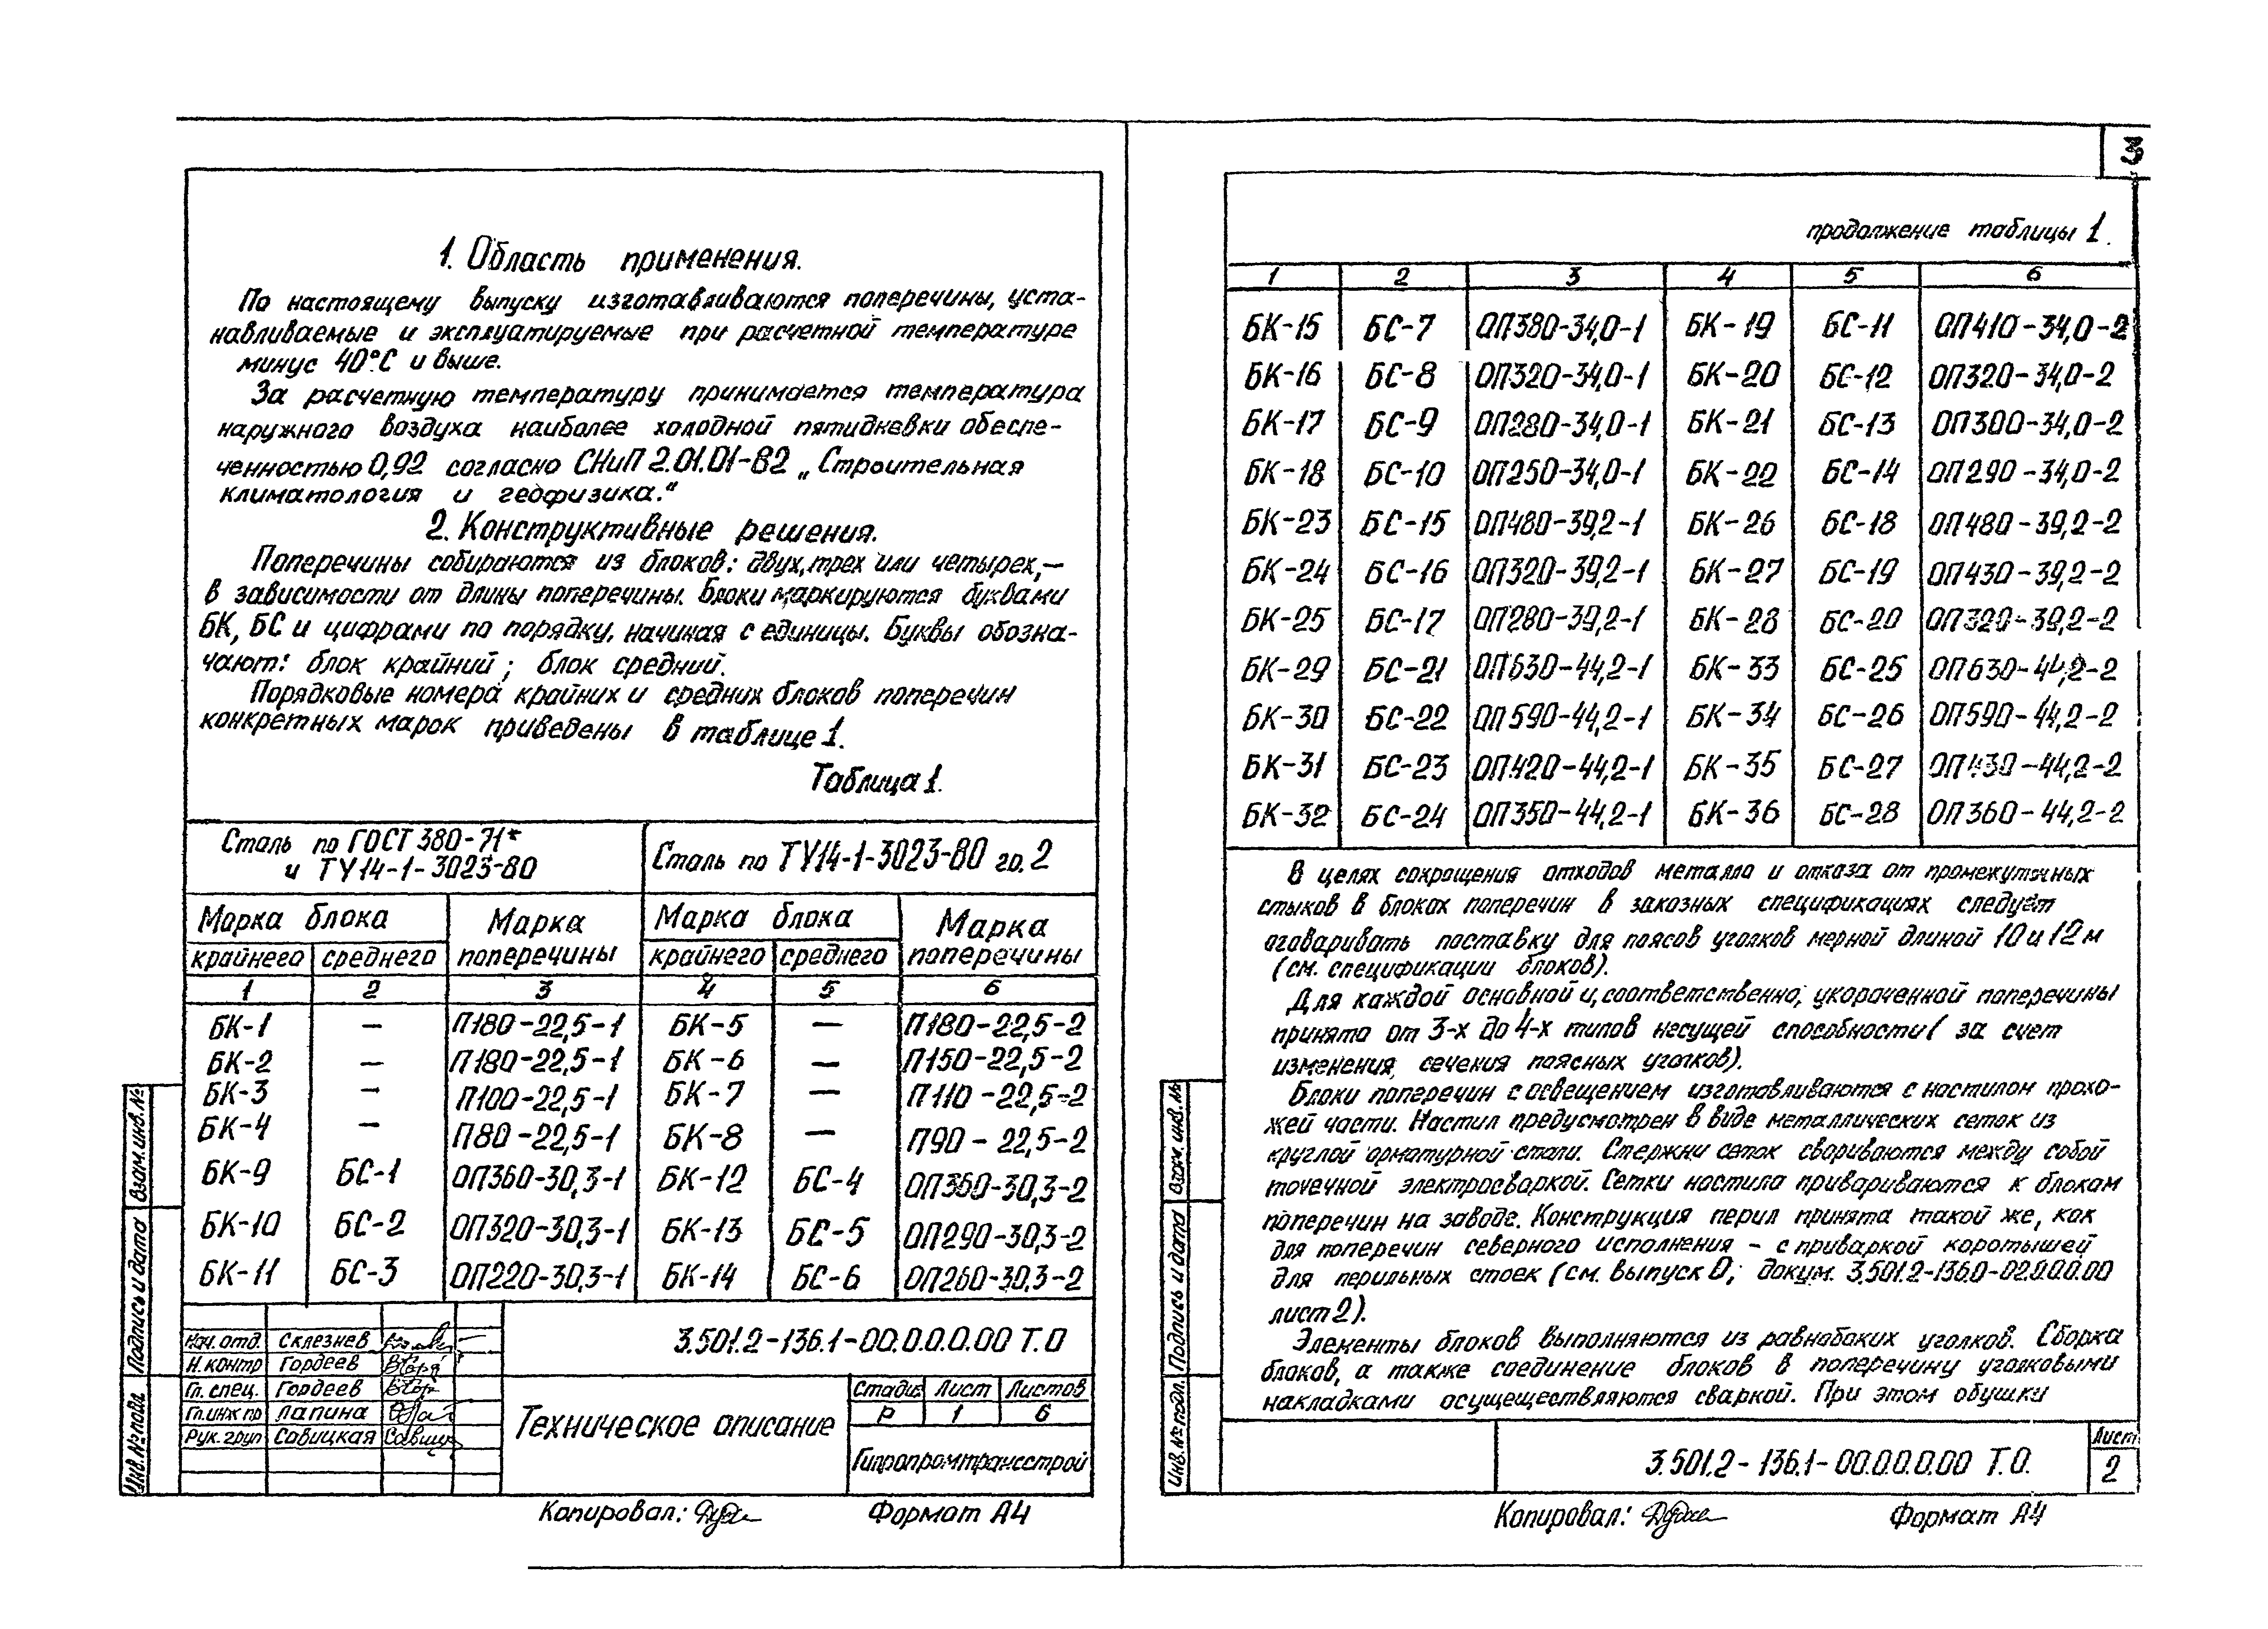 3
1. Область применения.
По настоящему выпуску изготавливаются поперечины, уста-
навливаемые и эксплуатируемые при расчетной температуре
минус 40°С и выше.
За расчетную температуру принимается температура
наружного воздуха наиболее холодной пятидневки обеспе-
ченностью 0,92 согласно СНиП 2.01.01-82 „Строительная
климатология и геофизика."
2. Конструктивные решения.
Поперечины собираются из блоков: двух, трех или четырех,—
в зависимости от длины поперечины. Блоки маркируются буквами
БК, БС и цифрами по порядку, начиная с единицы. Буквы обозна-
чают: блок крайний; блок средний.
Порядковые номера крайних и средних блоков поперечин
конкретных марок приведены в таблице 1.
Таблица 1.
Сталь по ГОСТ 380-71*
и ТУ14-1-3023-80
Сталь по ТУ14-1-3023-80 гр. 2
Марка блока Марка Марка блока Марка
крайнего среднего поперечины крайнего среднего поперечины
1 2 3 4 5 6
БК-1 — П180-22,5-1 БК-5 — П180-22,5-2
БК-2 — П180-22,5-1 БК-6 — П150-22,5-2
БК-3 — П100-22,5-1 БК-7 — П110-22,5-2
БК-4 — П80-22,5-1 БК-8 — П90-22,5-2
БК-9 БС-1 ОП360-30,3-1 БК-12 БС-4 ОП360-30,3-2
БК-10 БС-2 ОП320-30,3-1 БК-13 БС-5 ОП290-30,3-2
БК-11 БС-3 ОП220-30,3-1 БК-14 БС-6 ОП260-30,3-2
Взам. инв. №
Подпись и дата
Инв. № подл.
Нач. отд. Склезнев
Н. контр Гордеев
Гл. спец. Гордеев
Гл. инж пр Лапина
Рук. груп Савицкая
3.501.2-136.1-00.0.0.0.00 Т.О
Техническое описание
Стадия Лист Листов
Р 1 6
Гипропромтрансстрой
Копировал: Формат А4
продолжение таблицы 1.
1 2 3 4 5 6
БК-15 БС-7 ОП380-34,0-1 БК-19 БС-11 ОП410-34,0-2
БК-16 БС-8 ОП320-34,0-1 БК-20 БС-12 ОП320-34,0-2
БК-17 БС-9 ОП280-34,0-1 БК-21 БС-13 ОП300-34,0-2
БК-18 БС-10 ОП250-34,0-1 БК-22 БС-14 ОП290-34,0-2
БК-23 БС-15 ОП480-39,2-1 БК-26 БС-18 ОП480-39,2-2
БК-24 БС-16 ОП320-39,2-1 БК-27 БС-19 ОП430-39,2-2
БК-25 БС-17 ОП280-39,2-1 БК-28 БС-20 ОП320-39,2-2
БК-29 БС-21 ОП630-44,2-1 БК-33 БС-25 ОП630-44,2-2
БК-30 БС-22 ОП590-44,2-1 БК-34 БС-26 ОП590-44,2-2
БК-31 БС-23 ОП420-44,2-1 БК-35 БС-27 ОП430-44,2-2
БК-32 БС-24 ОП350-44,2-1 БК-36 БС-28 ОП360-44,2-2
В целях сокращения отходов металла и отказа от промежуточных
стыков в блоках поперечин в заказных спецификациях следует
оговаривать поставку для поясов уголков мерной длиной 10 и 12 м
(см. спецификации блоков).
Для каждой основной и, соответственно, укороченной поперечины
принято от 3-х до 4-х типов несущей способности (за счет
изменения сечения поясных уголков).
Блоки поперечин с освещением изготавливаются с настилом прохо-
жей части. Настил предусмотрен в виде металлических сеток из
круглой арматурной стали. Стержни сеток свариваются между собой
точечной электросваркой. Сетки настила привариваются к блокам
поперечин на заводе. Конструкция перил принята такой же, как
для поперечин северного исполнения - с приваркой коротышей
для перильных стоек (см. выпуск 0, докум. 3.501.2-136.0-02.0.0.0.00
лист 2).
Элементы блоков выполняются из равнобоких уголков. Сборка
блоков, а также соединение блоков в поперечину уголковыми
накладками осущеществляются сваркой. При этом обушки
Взам. инв. №
Подпись и дата
Инв. № подл.
3.501.2-136.1-00.0.0.0.00 Т.О.
Лист
2
Копировал: Формат А4